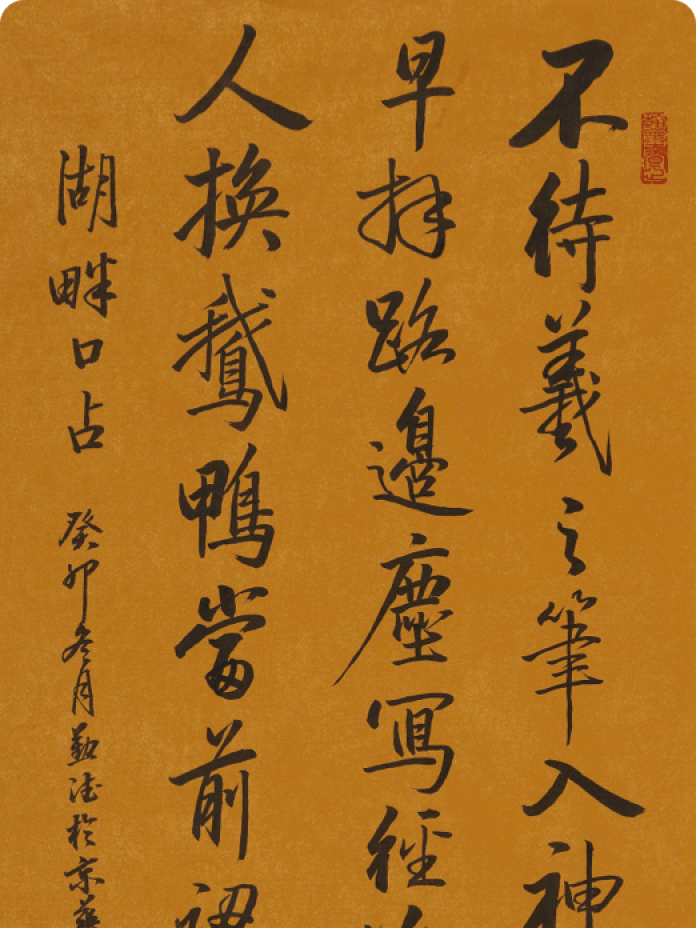 不待羲之筆入神
早拜路邊塵寫經
人換鵝鴨當前
湖畔口占
癸卯冬月勤德於京華